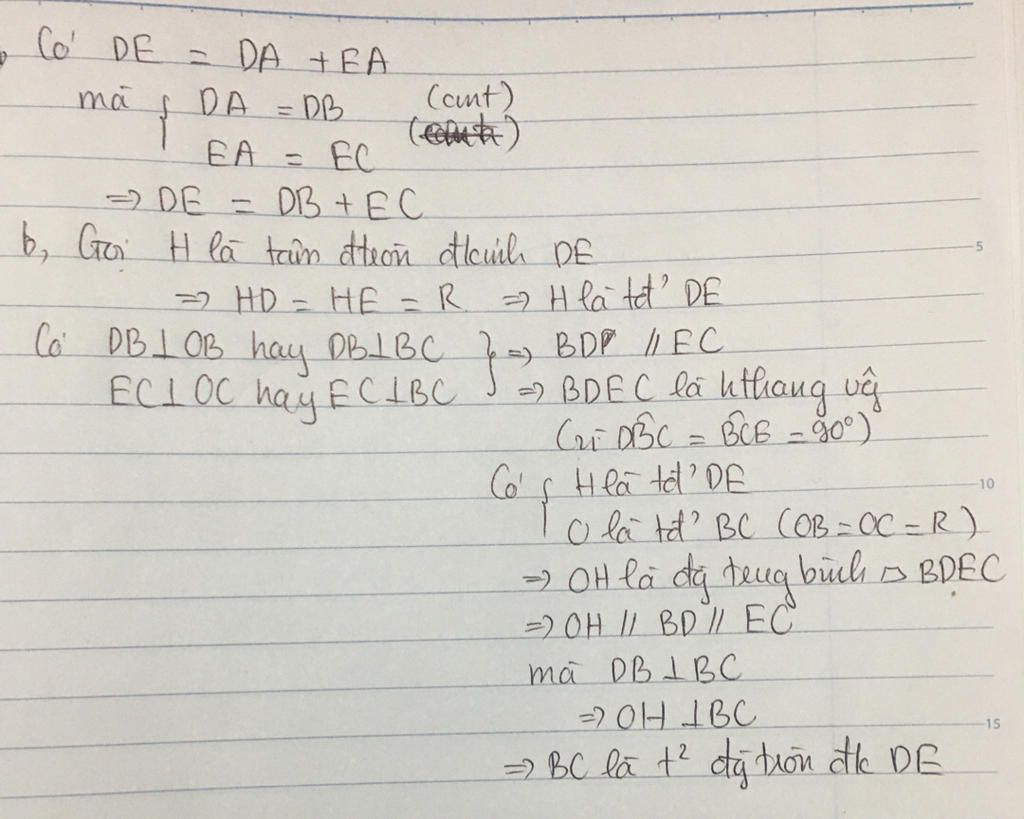 Có DE = DA + EA
mà { DA = DB (cmt)
EA = EC
=> DE = DB + EC
b, Gọi H là tâm đtròn đkính DE
=> HD = HE = R => H là tđ' DE
Có DB ⊥ OB hay DB ⊥ BC } => BD // EC
EC ⊥ OC hay EC ⊥ BC => BDEC là hthang vg
(vì DB̂C = BĈE = 90°)
Có { H là tđ' DE
O là tđ' BC (OB = OC = R)
=> OH là đg trung bình BDEC
=> OH // BD // EC
mà DB ⊥ BC
=> OH ⊥ BC
=> BC là t² đg tròn đk DE
5
10
15